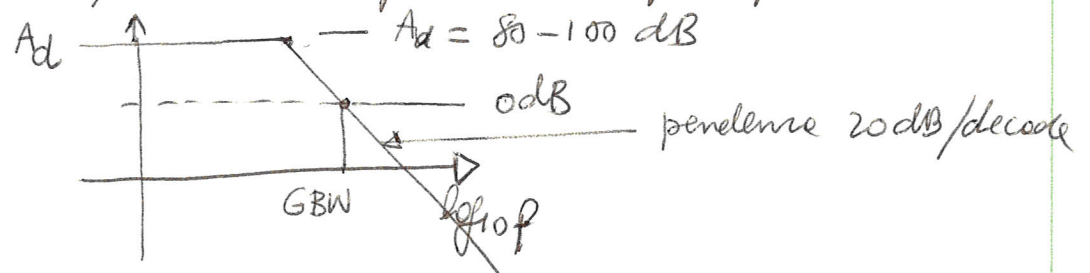 Ad
Ad = 80-100 dB
0dB
pendenza 20dB/decade
GBW
log10 f